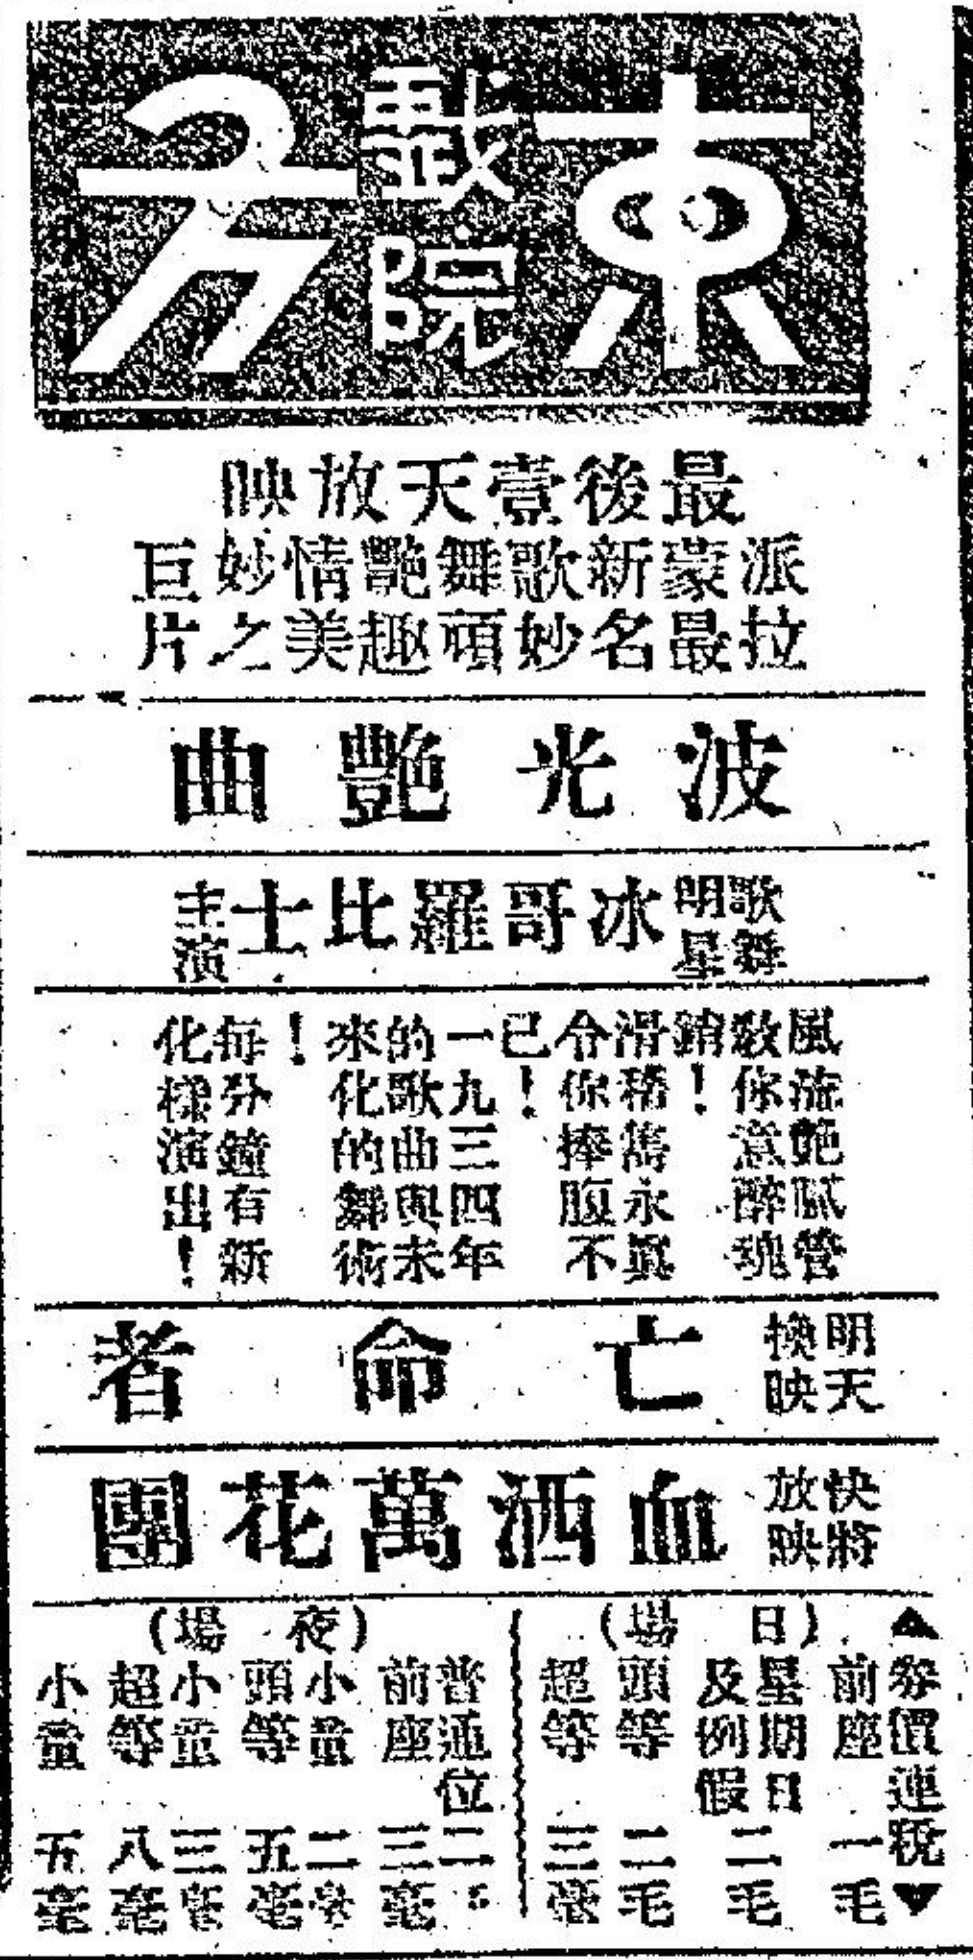 東方戲院
最後壹天放映
派蒙新歌舞艷情妙巨
拉最名妙頑趣美之片
波光艷曲
歌舞明星
冰哥羅比士
主演
風流艷膩管
教你意醉魂
銷!
滑稽雋永真
令你捧腹不
已!
一九三四年
的歌曲與未
來化的舞術
!
每分鐘有新
化樣演出!
明天換映
亡命者
快將放映
血洒萬花團
▲券價連稅▼
(日場)
前座 一毛
星期日及例假 二毛
頭等 二毛
超等 三毫
(夜場)
普通位 二
前座 三毫
小童 二毫
頭等 五毫
小童 三毫
超等 八毫
小童 五毫